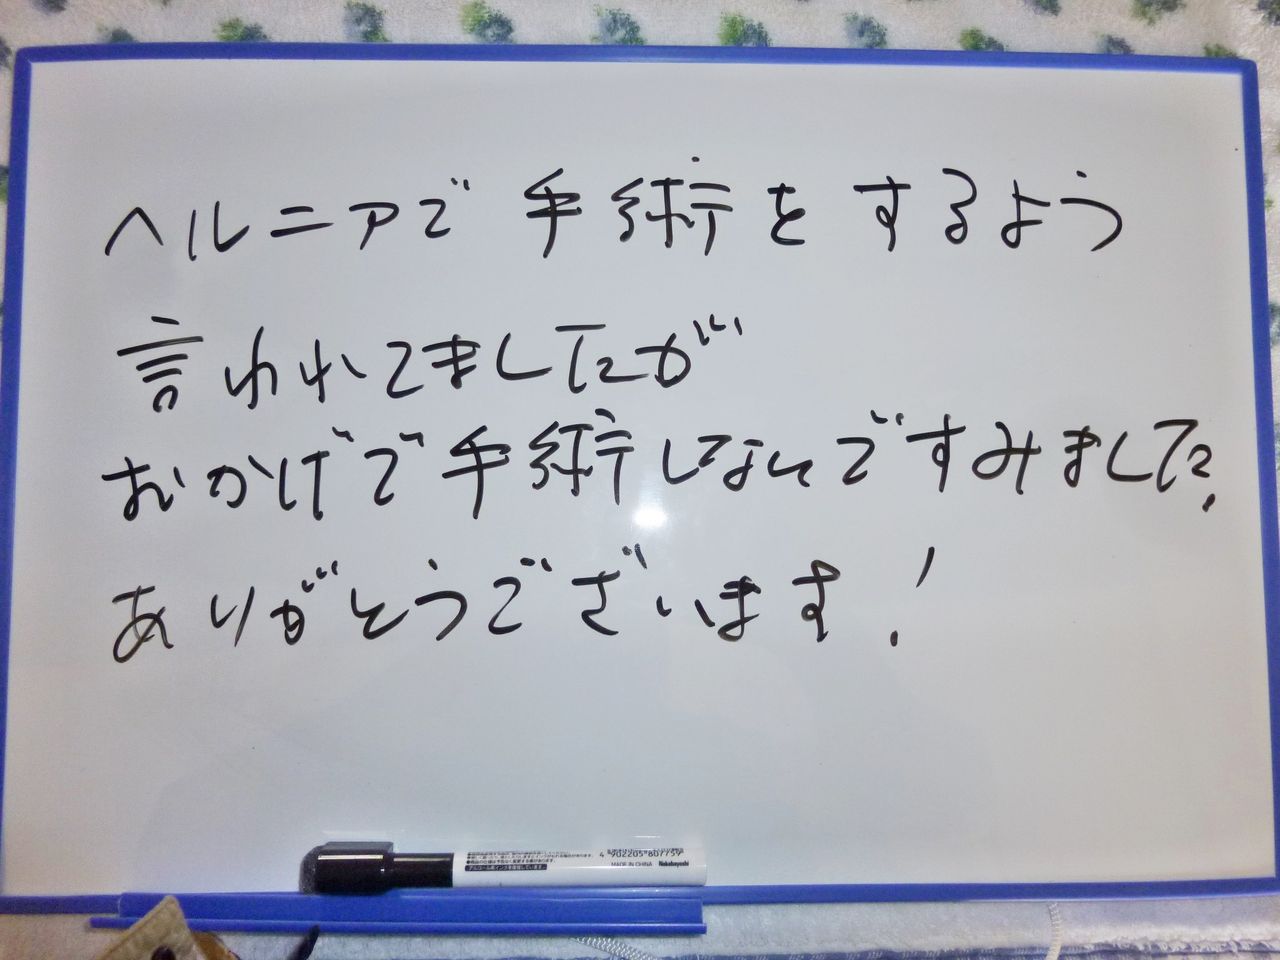 ヘルニアで手術をするよう
言われてましたが
おかげで手術しないですみました。
ありがとうございます!
4 902205 807759
MADE IN CHINA Nakabayashi